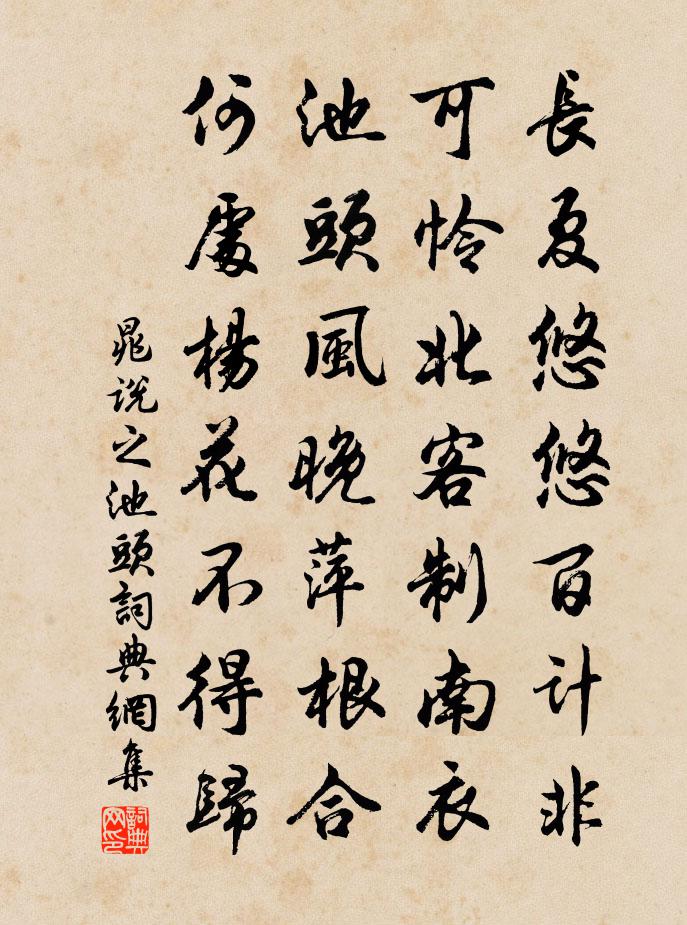 長夏悠悠百計非
可憐北客制南衣
池頭風晚萍根合
何處楊花不得歸
晁說之池頭詞典網集
詞典網印